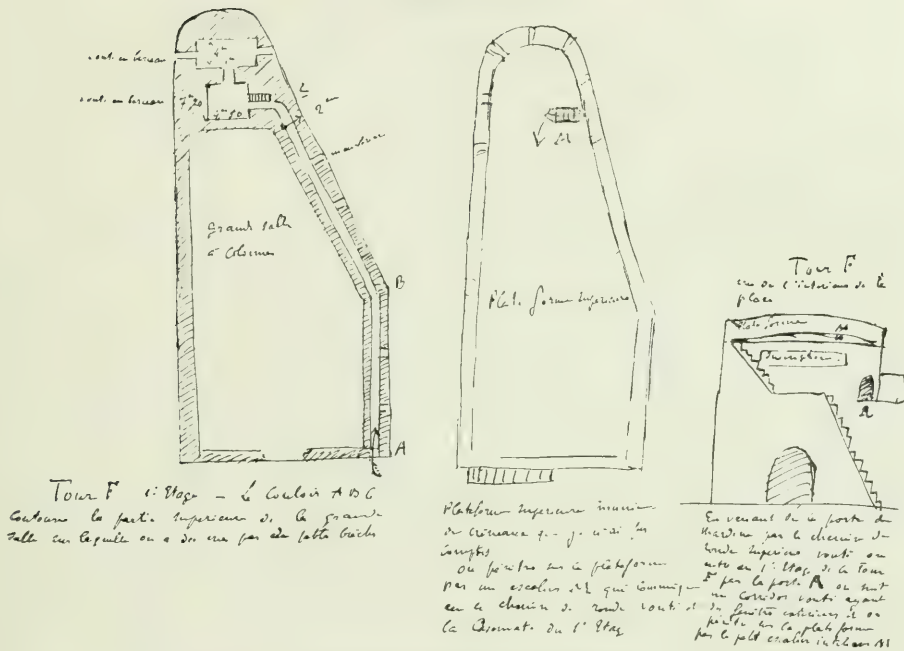 7m 20
2m
grande salle
à Colonnes
B
A
Tour F 1er Etage — Le Couloir A B C
Contourne la partie supérieure de la grande
salle sur laquelle on a des vues par de petites
Plate forme supérieure
Plateforme supérieure munie
de créneaux que je n'ai pas
comptés
On pénètre sur la plateforme
par un escalier qui communique
avec le chemin de ronde vouté et
la Casemate du 1er Etage
Tour F
vue de l'intérieur de la
place
Plateforme
M
Inscription
A
En venant de la porte de
par le chemin de
ronde supérieur vouté on
entre au 1er Etage de la Tour
F par la porte A on suit
un corridor vouté ayant
des fenêtres et on
pénètre sur la plate forme
par le petit escalier intérieur M